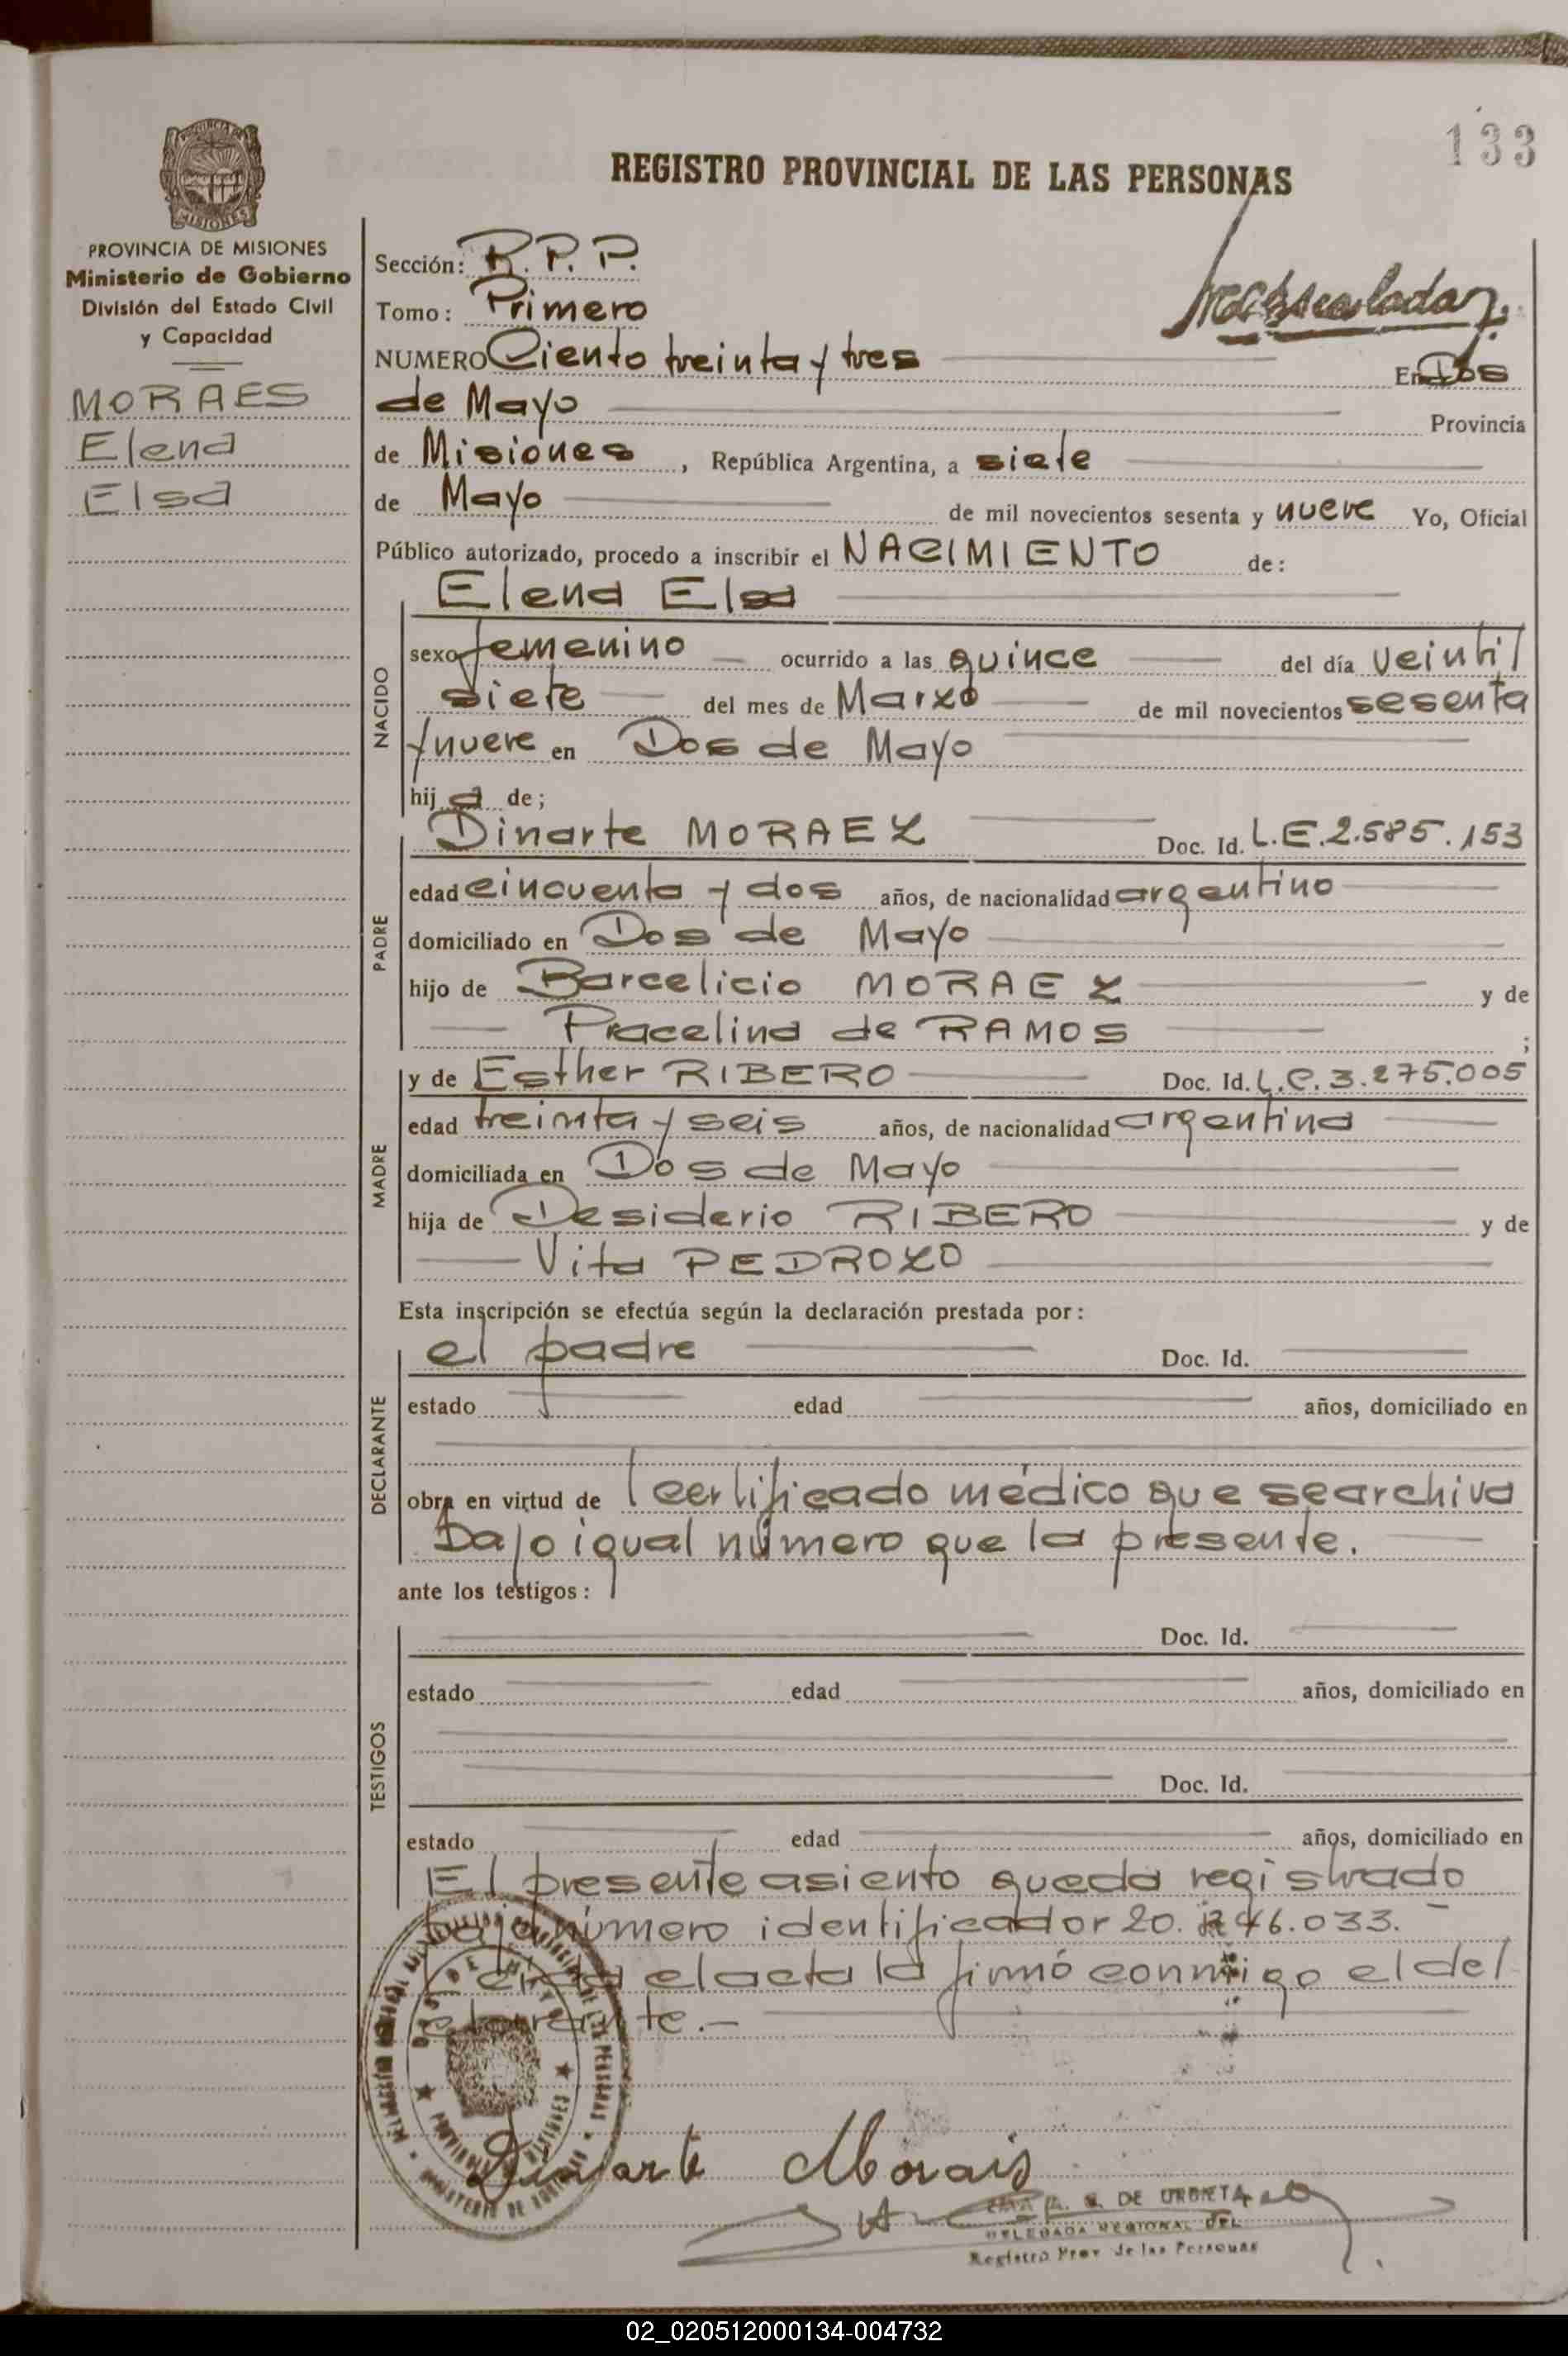 133
REGISTRO PROVINCIAL DE LAS PERSONAS
MISIONES
PROVINCIA DE MISIONES
Ministerio de Gobierno
División del Estado Civil
y Capacidad
MORAES
Elena
Elsa
Sección: R.P.P.
Tomo: Primero
NUMERO Ciento treinta y tres En Dos
de Mayo Provincia
de Misiones, República Argentina, a siete
de Mayo de mil novecientos sesenta y nueve Yo, Oficial
Público autorizado, procedo a inscribir el NACIMIENTO de:
Elena Elsa
NACIDO
sexo femenino ocurrido a las quince del día veinti
siete del mes de Marzo de mil novecientos sesenta
y nueve en Dos de Mayo
hija de;
PADRE
Dinarte MORAEZ Doc. Id. L.E.2.585.153
edad cincuenta y dos años, de nacionalidad argentino
domiciliado en Dos de Mayo
hijo de Barcelicio MORAEZ y de
Pracelina de RAMOS ;
MADRE
y de Esther RIBERO Doc. Id. L.C.3.275.005
edad treinta y seis años, de nacionalidad argentina
domiciliada en Dos de Mayo
hija de Desiderio RIBERO y de
Vita PEDROZO
Esta inscripción se efectúa según la declaración prestada por:
DECLARANTE
el padre Doc. Id.
estado edad años, domiciliado en
obra en virtud de certificado médico que se archiva
bajo igual número que la presente.
ante los testigos:
TESTIGOS
Doc. Id.
estado edad años, domiciliado en
Doc. Id.
estado edad años, domiciliado en
El presente asiento queda registrado
bajo número identificador 20. 46.033.
el acta la firmó conmigo el del
Dinarte Morais
DE URBIETA
DELEGADA REGIONAL DEL
Registro Prov de las Personas
02_020512000134-004732